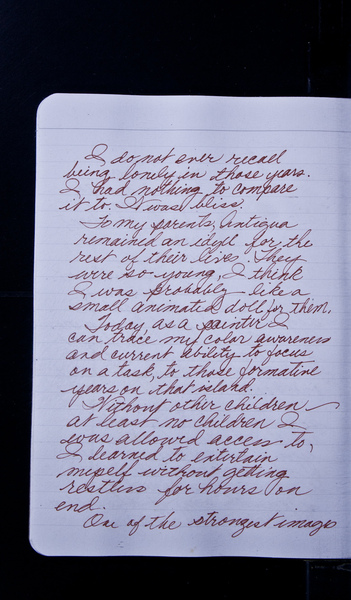 I do not ever recall
being lonely in those years.
I had nothing to compare
it to. It was bliss.
To my parents, Antigua
remained an idyll for the
rest of their lives. They
were so young, I think
I was probably like a
small animated doll for them.
Today, as a painter I
can trace my color awareness
and current ability to focus
on a task, to those formative
years on that island.
Without other children –
at least no children I
was allowed access to,
I learned to entertain
myself without getting
restless for hours on
end.
One of the strongest images